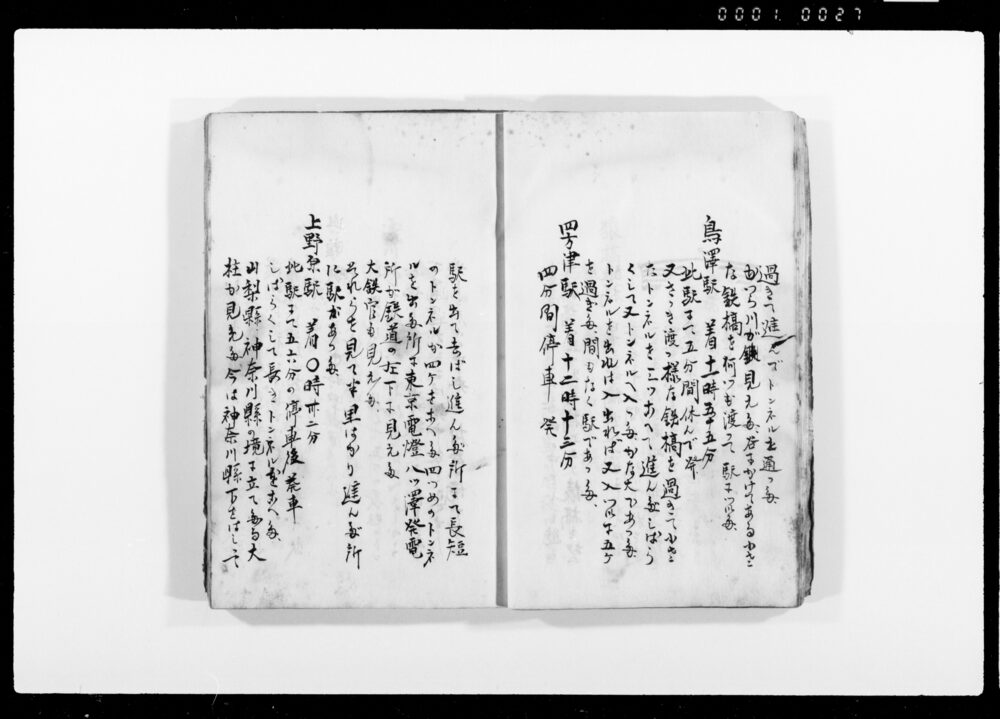 0001. 0027
過ぎて進んでトンネルを通った
かつら川が見えた、谷にかけてある小さ
な鉄橋を何つか渡って駅につゐた
鳥澤駅 着十一時五十五分
此駅にて五分間休んで発
又さっき渡った様な鉄橋を過ぎて小さ
たトンネルを三つこへて進んだしばら
くして又トンネルへ入ったかな大であった
トンネルを出れば入出れば又入つゐに五ヶ
を過ぎた間もなく駅であった
四方津駅 着十二時十三分
四分間停車 発
駅を出て去ばし進んだ所にて長短
のトンネルが四ケをこへた四つめのトンネ
ルを出た所に東京電燈八ツ澤発電
所が鉄道の左下に見えた
大鉄管も見えた
それらを見て半里ばかり進んだ所
に駅があった
上野原駅 着〇時廿二分
此駅にて五六分の停車後発車
しばらくして長きトンネルをこへた
山梨縣神奈川縣の境に立てたる大
柱が見えた今は神奈川縣下をはしって